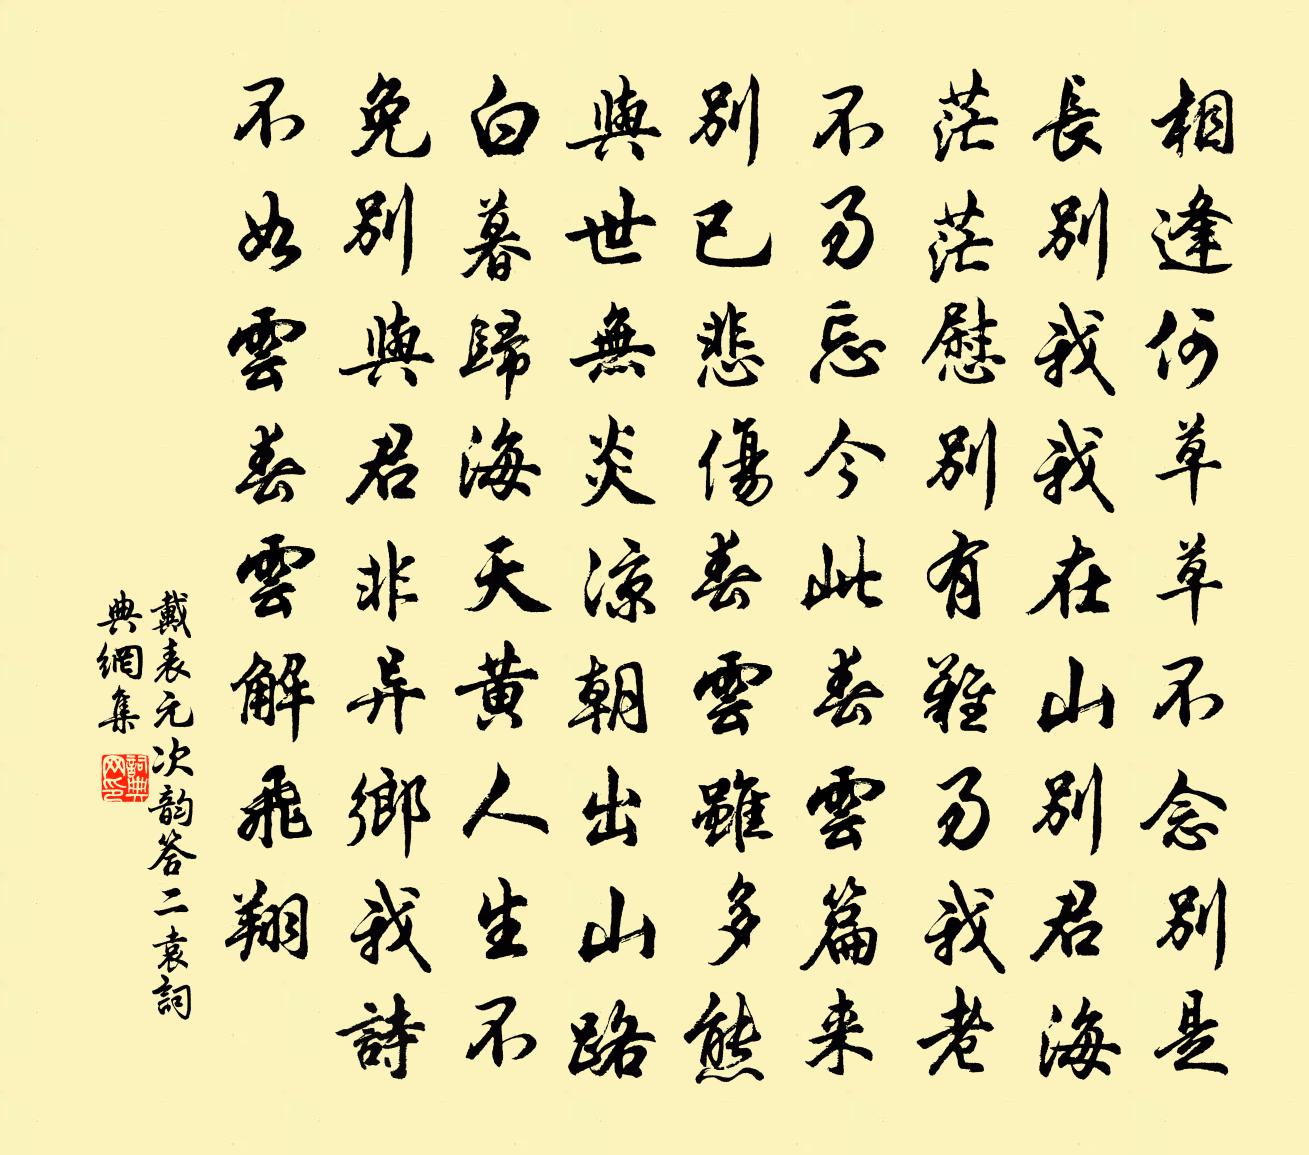 相逢何草草不念別是
長別我我在山別君海
茫茫慰別有難易我老
不易忘今此春雲篇来
別已悲傷春雲雖多態
與世無炎涼朝出山路
白暮歸海天黃人生不
免別與君非异鄉我詩
不如雲春雲解飛翔
戴表元次韵答二袁詞
典網集
詞典网印